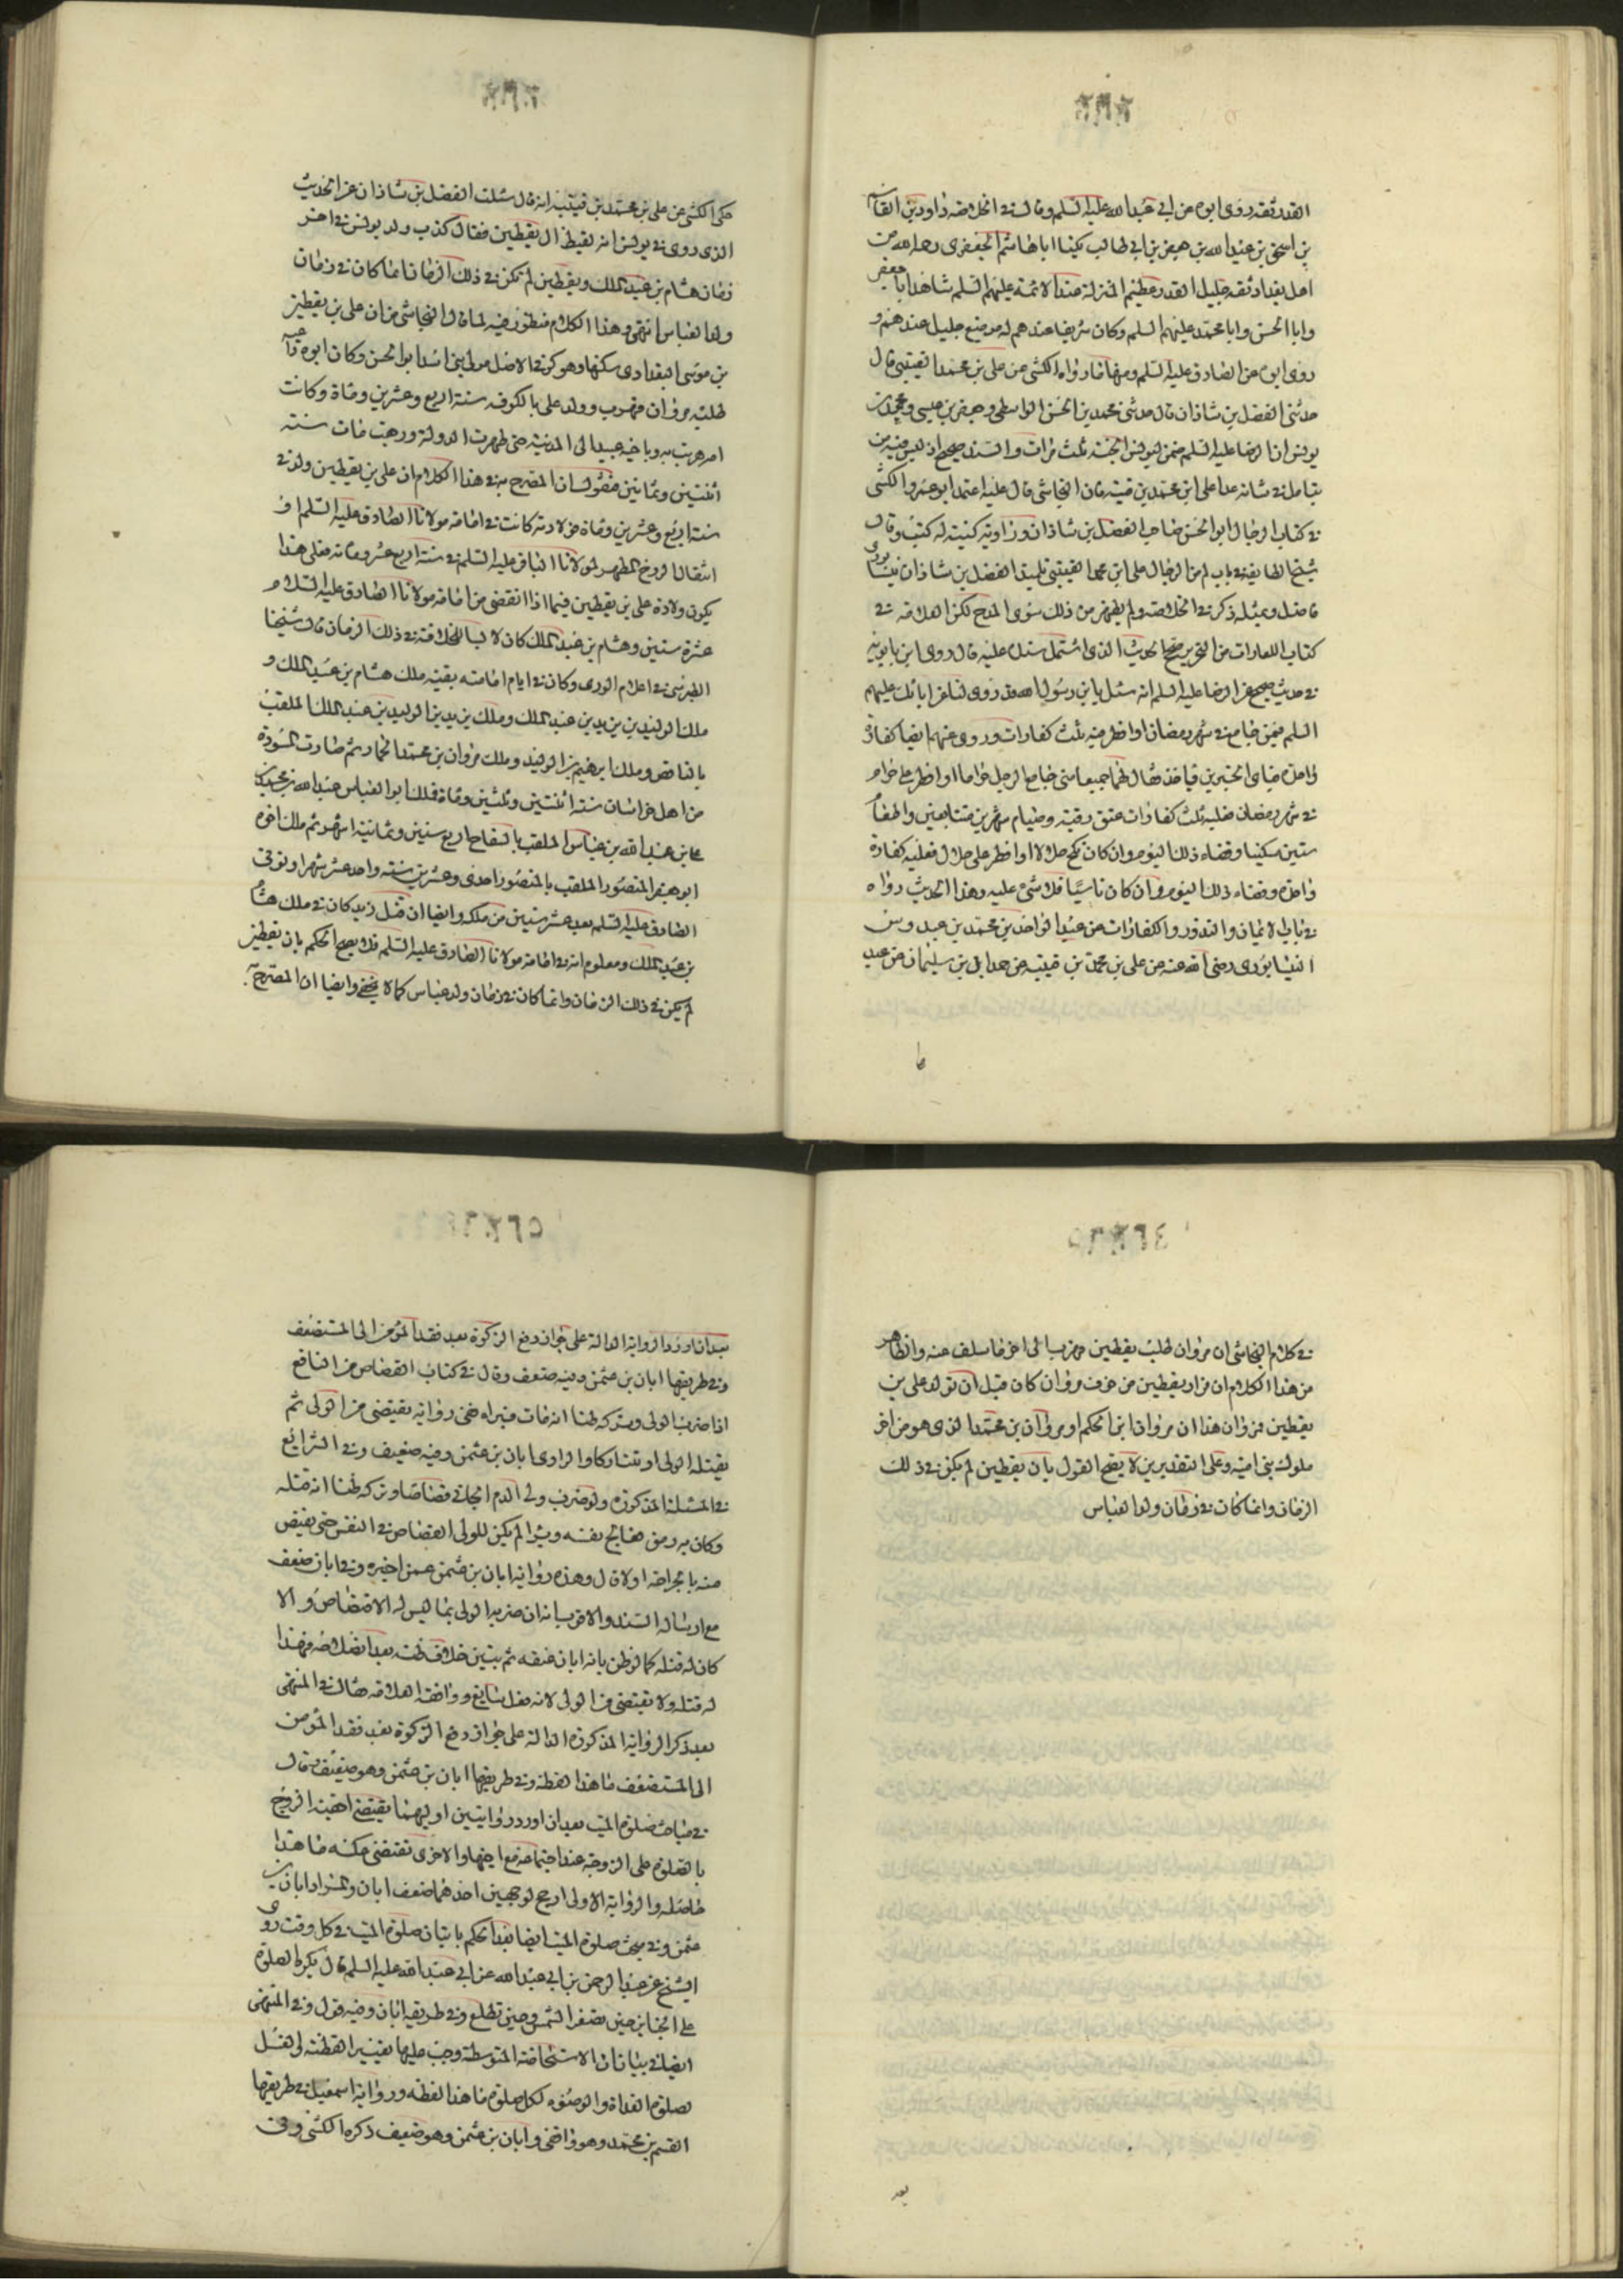 القدر ثقه روى ابوه عن ابي عبد الله عليه السلم وقال في الخلاصه داود بن القاسم
بن اسحق بن عبد الله بن جعفر بن ابي طالب يكنا ابا هاشم الجعفرى رحمه الله من
اهل بغداد ثقه جليل القدر عظيم المنزلة عند الائمة عليهم السلم شاهد ابا جعفر
وابا الحسن وابا محمد عليهم السلم وكان شريفا عندهم له موضع جليل عندهم و
روى ابوه عن الصادق عليه السلم ومنها ما رواه الكشى عن على بن محمد القتيبى قال
حدثنى الفضل بن شاذان قال حدثنى محمد بن الحسن الواسطى وجعفر بن عيسى ومحمد بن
يونس ان الرضا عليه السلم ضمن ليونس الجنة ثلث مرات والسند صحيح اذ ليس فيه من
يتامل في شانه عدا على ابن محمد بن قتيبة فان النجاشى قال عليه اعتمد ابو عمرو الكشى
في كتاب الرجال ابو الحسن صاحب الفضل بن شاذان وراويه كتبه له كتب وقال
شيخ الطايفه في باب لم من الرجال على ابن محمد القتيبى تلميذ الفضل بن شاذان نيشابورى
فاضل وبمثله ذكر في الخلاصه ولم يظهر من ذلك سوى المدح لكن العلامه في
كتاب الكفارات من التحرير صحح الحديث الذى اشتمل سنده عليه قال روى ابن بابويه
في حديث صحيح عن الرضا عليه السلم انه سئل يا بن رسول الله قد روى لنا عن ابائك عليهم
السلم فيمن جامع في شهر رمضان او افطر فيه ثلث كفارات وروى عنهم ايضا كفارة
واحدة فباى الخبرين ناخذ فقال بهما جميعا متى جامع الرجل حراما او افطر على حرام
في شهر رمضان فعليه ثلث كفارات عتق رقبة وصيام شهرين متتابعين واطعام
ستين مسكينا وقضاء ذلك اليوم وان كان نكح حلالا او افطر على حلال فعليه كفارة
واحدة وقضاء ذلك اليوم وان كان ناسيا فلا شىء عليه وهذا الحديث رواه
في باب الايمان والنذور والكفارات عن عبد الواحد بن محمد بن عبدوس
النيشابورى رضى الله عنه عن على بن محمد بن قتيبه عن حمدان بن سليمان عن عبد
حكى الكشى عن على بن محمد بن قتيبة انه قال سئلت الفضل بن شاذان عن الحديث
الذى روى في يونس انه لقيط ال يقطين فقال كذب ولد يونس في اخر
زمان هشام بن عبد الملك ويقطين لم يكن في ذلك الزمان انما كان في زمان
ولد العباس انتهى وهذا الكلام منظور فيه لما قال النجاشى من ان على بن يقطين
بن موسى البغدادى سكنها وهو كوفى الاصل مولى بنى اسد ابو الحسن وكان ابوه
طلبه مروان فهرب وولد على بالكوفه سنة اربع وعشرين ومائة وكانت
امه هربت به وباخيه عبيد الى المدينة حتى ظهرت الدولة ورجعت مات سنه
اثنتين وثمانين فنقول ان المصرح به في هذا الكلام ان على بن يقطين ولد في
سنة اربع وعشرين ومائة فولادته كانت في امامة مولانا الصادق عليه السلم اذ
انتقال الروح المطهر لمولانا الباقر عليه السلم في سنة اربع عشر ومائة فعلى هذا
يكون ولادة على بن يقطين فيما اذا انقضى من امامة مولانا الصادق عليه السلام
عشرة سنين وهشام بن عبد الملك كان لابسا للخلافة في ذلك الزمان قال شيخنا
الطبرسى في اعلام الورى وكان في ايام امامته بقية ملك هشام بن عبد الملك و
ملك الوليد بن يزيد بن عبد الملك وملك يزيد بن الوليد بن عبد الملك الملقب
بالناقص وملك ابرهيم بن الوليد وملك مروان بن محمد الحمار ثم صارت المسودة
من اهل خراسان سنة اثنتين وثلثين ومائة فملك ابو العباس عبد الله بن محمد بن
على بن عبد الله بن عباس الملقب بالسفاح اربع سنين وثمانية اشهر ثم ملك اخوه
ابو جعفر المنصور الملقب بالمنصور احدى وعشرين سنة واحد عشر شهرا وتوفى
الصادق عليه السلم بعد عشر سنين من ملكه وايضا ان قتل زيد كان في ملك هشام
بن عبد الملك ومعلوم انه في امامة مولانا الصادق عليه السلم فلا يصح الحكم بان يقطين
لم يكن في ذلك الزمان وانما كان في زمان ولد عباس كما لا يخفى وايضا ان المصرح به
في كلام النجاشى ان مروان طلب يقطين فهرب الى اخر ما سلف عنه والظاهر
من هذا الكلام ان فرار يقطين من خوف مروان كان قبل ان تولد على بن
يقطين فمروان هذا ان مروان ابن الحكم او مروان بن محمد الذى هو من اخر
ملوك بنى امية وعلى التقديرين لا يصح القول بان يقطين لم يكن في ذلك
الزمان وانما كان في زمان ولد العباس
بعد ان اورد الرواية الدالة على جواز دفع الزكوة بعد فقد المؤمن الى المستضعف
وفي طريقها ابان بن عثمن وفيه ضعف وقال في كتاب القصاص من النافع
اذا ضرب الولى وتركه ظنا انه مات فبرا ففى رواية يقتص من الولى ثم
يقتله الولى او يتتاركا والراوى ابان بن عثمن وفيه ضعف وفي الشرائع
في المسئلة المذكورة ولو ضرب ولى الدم الجانى قصاصا وتركه ظنا انه قتله
وكان به رمق فعالج نفسه وبرا لم يكن للولى القصاص في النفس حتى يقتص
منه بالجراحة اولا قال وهذه رواية ابان بن عثمن عمن اخبره وفي ابان ضعف
مع ارساله السند والاقرب انه ان ضربه الولى بما ليس له الاقتصاص والا
كان له قتله كما لو ظن بانه ابان عنقه ثم تبين خلاف ظنه بعد انصلاحه فهذا
له قتله ولا يقتص من الولى لانه فعل سايغ ووافقه العلامه فقال في المنتهى
بعد ذكر الرواية المذكورة الدالة على جواز دفع الزكوة بعد فقد المؤمن
الى المستضعف ما هذا لفظه وفي طريقها ابان بن عثمن وهو ضعيف وقال
في مباحث صلوة الميت بعد ان اورد روايتين اوليهما يقتضى احقية الزوج
بالصلوة على الزوجة عند اجتماعه مع اخيها والاخرى تقتضى عكسه ما هذا
حاصله والرواية الاولى ارجح لوجهين احدهما ضعف ابان والمراد ابان بن
عثمن وفي مبحث صلوة الميت ايضا بعد الحكم باتيان صلوة الميت في كل وقت روى
الشيخ عن عبد الرحمن بن ابي عبد الله عن ابي عبد الله عليه السلم قال يكره الصلوة
على الجنايز حين تصفر الشمس وحين تطلع وفي طريقه ابان وفيه قول وفي المنتهى
ايضا في بيان ان الاستحاضة المتوسطة وجب عليها تغيير القطنة والغسل
لصلوة الغداة والوضوء لكل صلوة ما هذا لفظه ورواية اسمعيل في طريقها
القسم بن محمد وهو واقفى وابان بن عثمن وهو ضعيف ذكره الكشى وفى